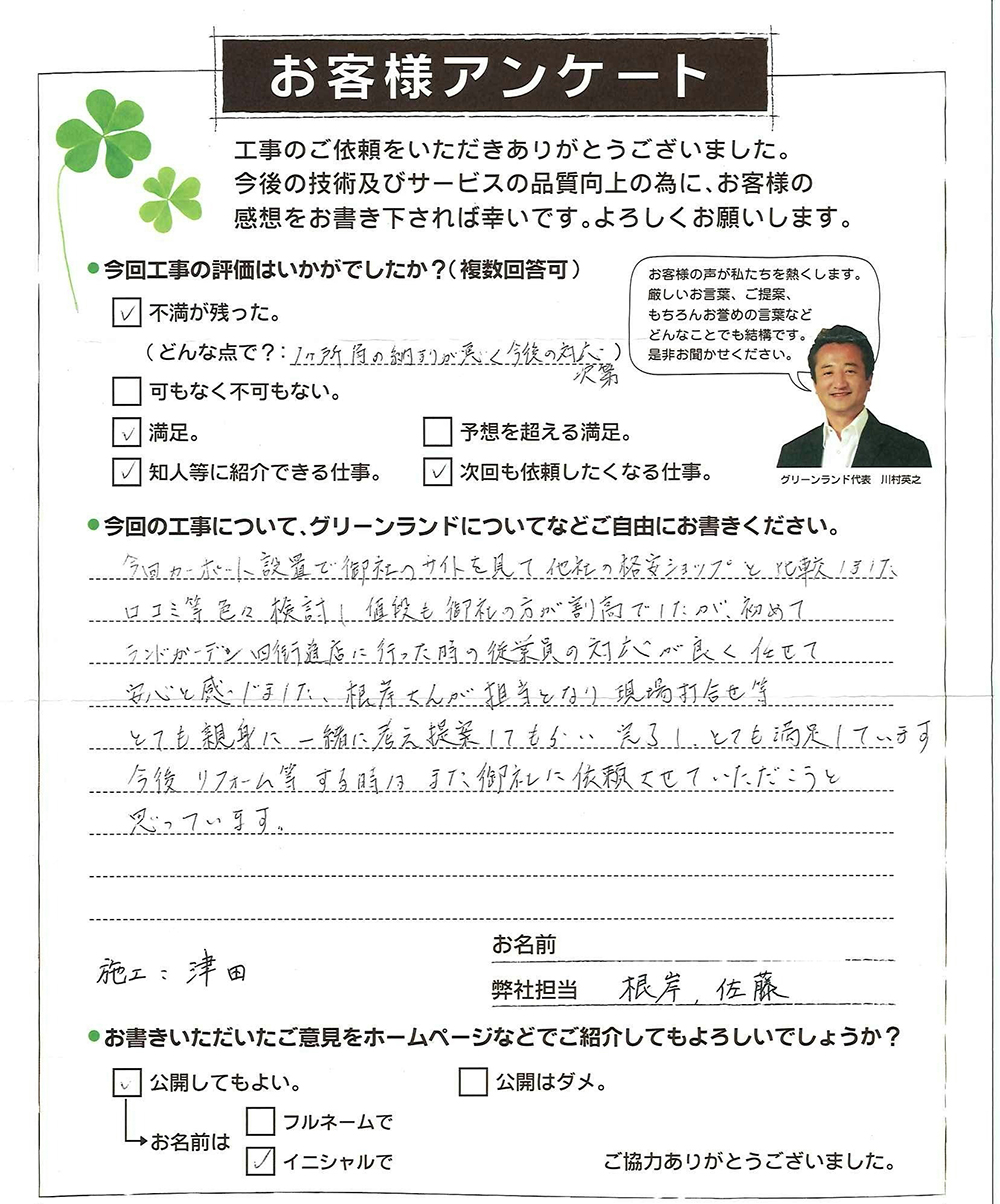 お客様アンケート
工事のご依頼をいただきありがとうございました。
今後の技術及びサービスの品質向上の為に、お客様の
感想をお書き下されば幸いです。よろしくお願いします。
●今回工事の評価はいかがでしたか？(複数回答可)
お客様の声が私たちを熱くします。
厳しいお言葉、ご提案、
もちろんお誉めの言葉など
どんなことでも結構です。
是非お聞かせください。
グリーンランド代表 川村英之
✓ 不満が残った。
(どんな点で？: 1ヶ所角の納まりが悪く今後の対応
次第)
可もなく不可もない。
✓ 満足。 予想を超える満足。
✓ 知人等に紹介できる仕事。 ✓ 次回も依頼したくなる仕事。
●今回の工事について、グリーンランドについてなどご自由にお書きください。
今回カーポート設置で御社のサイトを見て他社の格安ショップと比較しました
口コミ等色々検討し値段も御社の方が割高でしたが、初めて
ランドガーデン四街道店に行った時の従業員の対応が良く任せて
安心と感じました、根岸さんが担当となり現場打合せ等
とても親身に一緒に考え提案してもらい完了し、とても満足しています
今後リフォーム等する時はまた御社に依頼させていただこうと
思っています。
施工: 津田
お名前
弊社担当 根岸、佐藤
●お書きいただいたご意見をホームページなどでご紹介してもよろしいでしょうか？
✓ 公開してもよい。 公開はダメ。
お名前は
フルネームで
✓ イニシャルで
ご協力ありがとうございました。